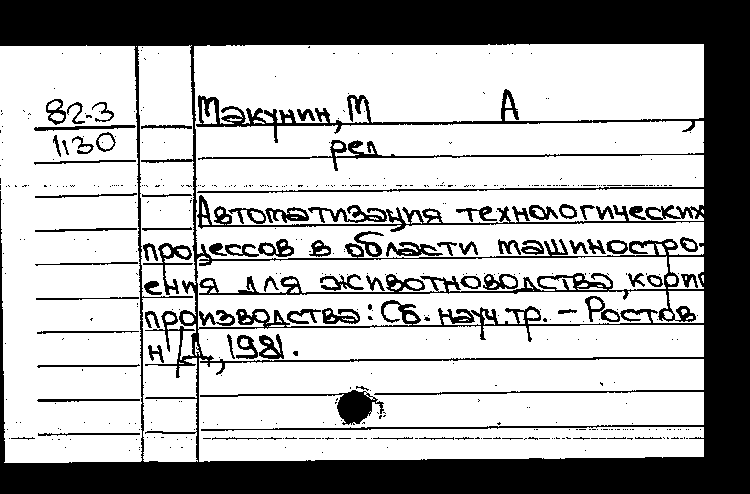 82-3
1130
Макунин, М А ,
рел.
Автоматизация технологических
процессов в области машиностро-
ения для животноводства, корпо
производства: Сб. науч. тр. - Ростов
н/Д, 1981.